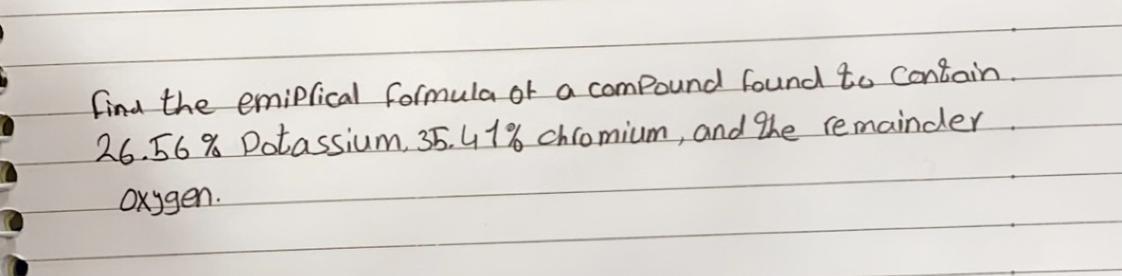 find the emiprical formula of a compound found to contain.
26.56% Potassium, 35.41% chromium, and the remainder.
oxygen.